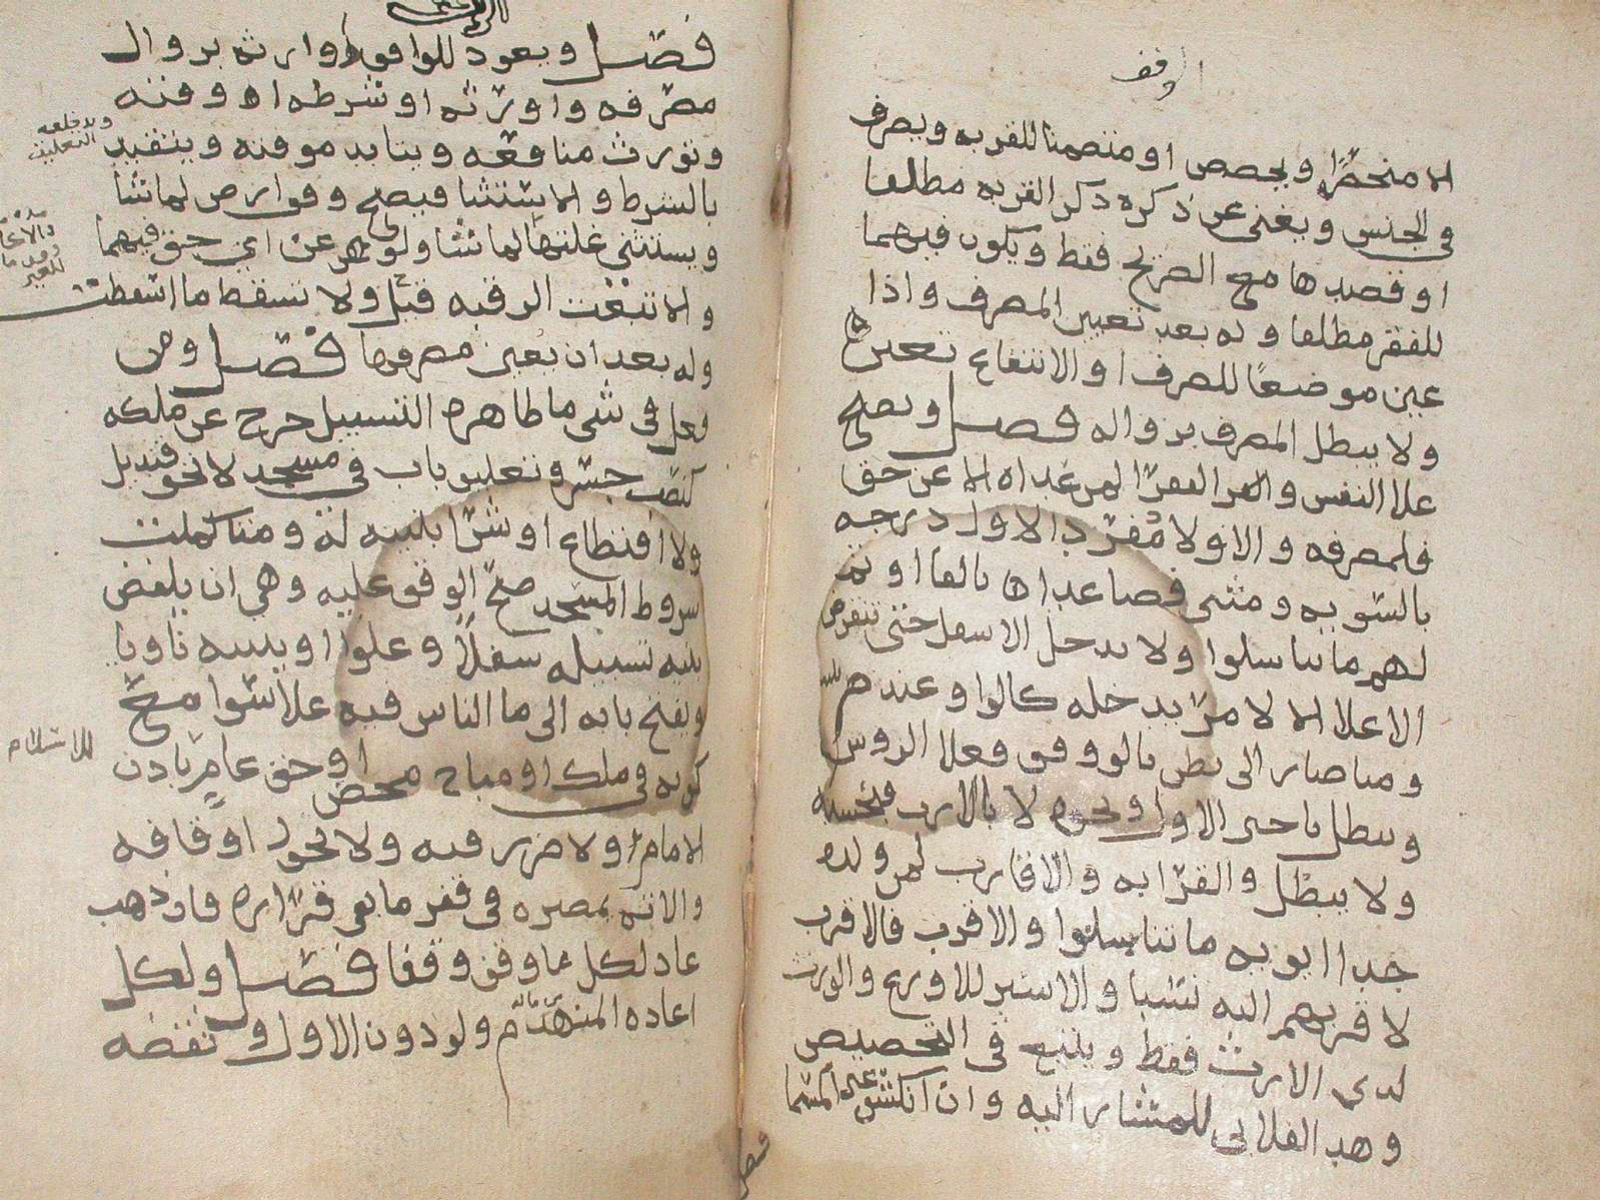 الوقف
الا منحصرًا ويحصص او متضمنا للقربه ويصرف
في الجنس ويغني عن ذكره ذكر القربه مطلقا
او قصدها مع الصريح فقط ويكون فيهما
للفقر مطلقا وله بعد تعيين المصرف واذا
عين موضعًا للصرف او الانتفاع تعين
ولا يبطل المصرف بزواله فصل ويصح
علا النفس والفقرا لمن عداه الا عن حق
فلمصرفه والاولاد مفردا لاول درجه
بالسويه ومثنى فصاعدا او بالفا او ثم
لهم ما تناسلوا ولا يدخل الاسفل حتى ينقرض
الاعلا الا لامر يدخله كالواو عند
وما صار الى بطن بالوقف فعلا الروس
ويبطل تاجير الاول ونحوه لا بالارث فبحسبه
ولا يبطل والقرابه والاقارب لمن ولده
جدا ابويه ما تناسلوا والاقرب فالاقرب
لاقربهم اليه نسبا والاستر للاورع والوارث
لذي الارث فقط ويتبع في التحصيص
وهذا الفلاني للمشار اليه وان انكشف غير المسما
فصل
فصل ويعود للواقف او وارثه بزوال
مصرفه او ورثته او شرطه او وقته
وتورث منافعه ويتابد موقته ويتقيد
بالشرط والاستثنا فيصح وقف ارض لما شا
ويستثني غلتها لما شا ولو عن اي حق فيهما
والا تبعت الرقبه قيل ولا تسقط ما اسقطت
وله بعد ان يعين مصرفها فصل ومن
فعل في شي ما ظاهره التسبيل خرج عن ملكه
كنصب جسر وتعليق باب في مسجد لا نحو قنديل
ولا اقتطاع او شرا بنيته له ومتا كملت
شروط المسجد صح الوقف عليه وهي ان يلفظ
بنيه تسبيله سفلا وعلوا او يبنيه ناويا
ويفتح بابه الى ما الناس فيه علا سوا مع
كونه في ملك او مباح محض او حق عام باذن
الامام ولا ضرر فيه ولا تحول اوقافه
والاته بمصيره في قفر ما بقي قراره فان ذهب
عاد لكل ما وقف وقفا فصل ولكل
اعاده المنهدم ولو دون الاول ونقضه
ويدخله
التعليق
للاسلام